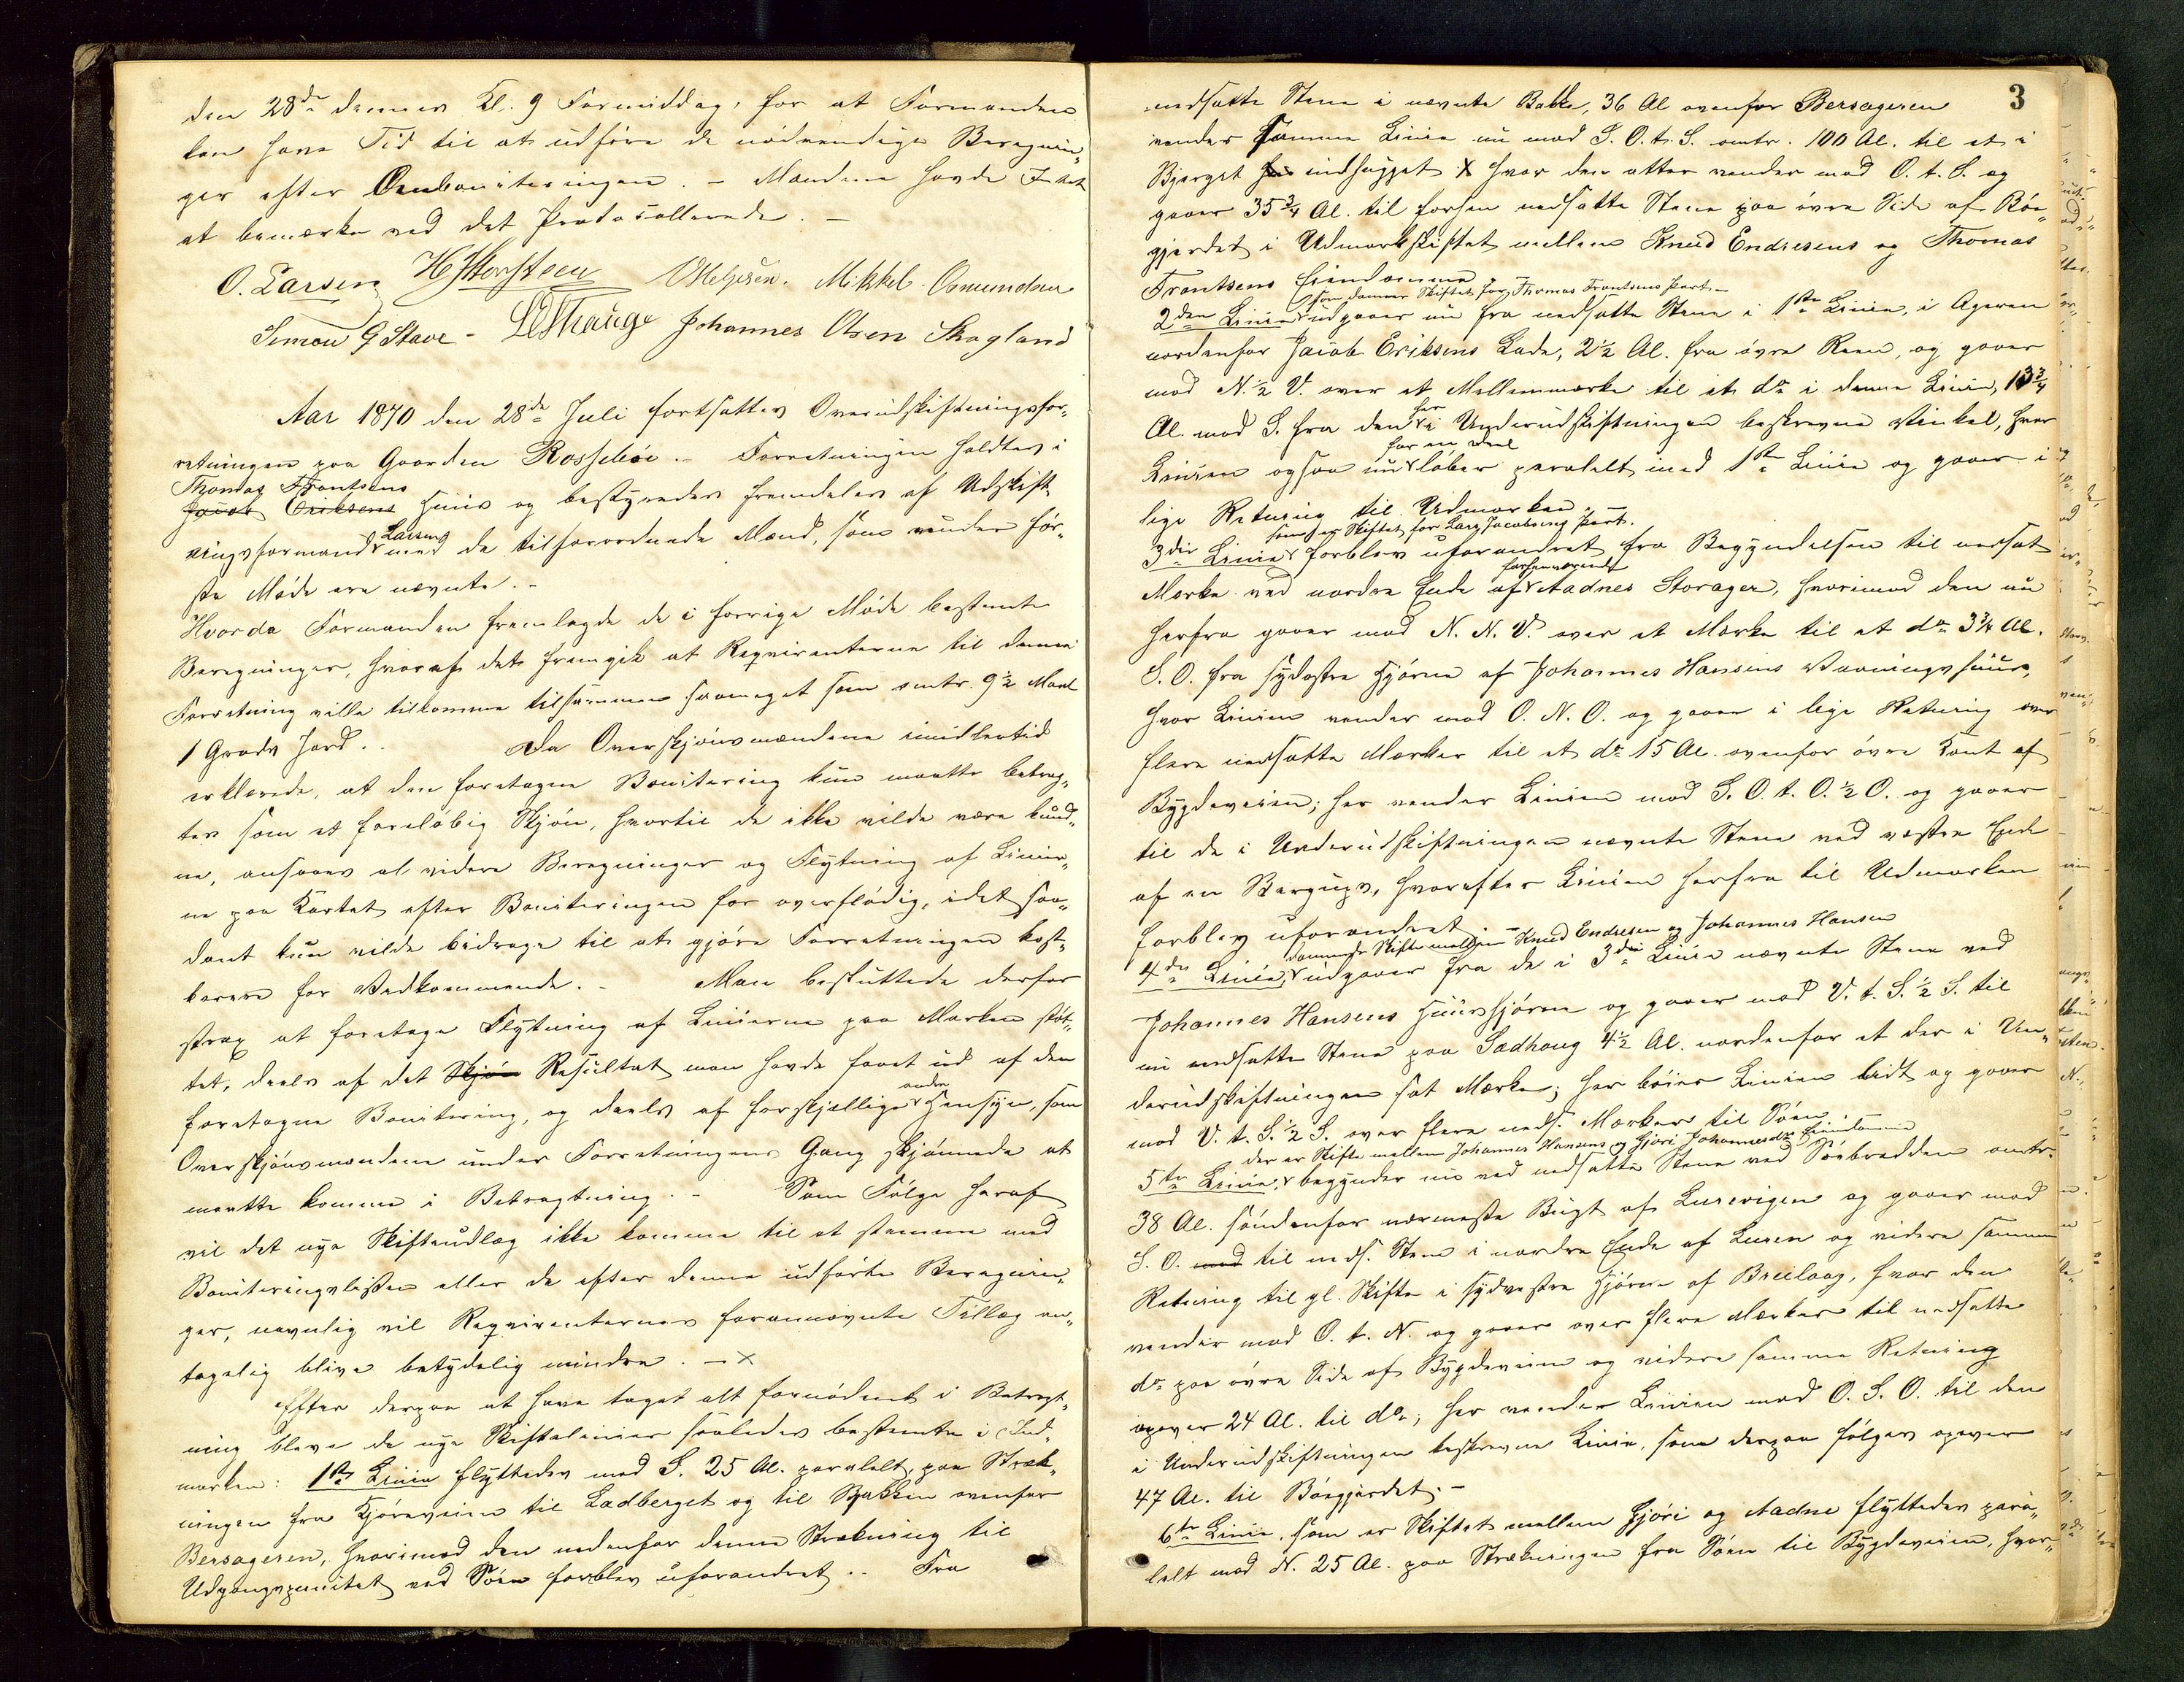 den 28de dennes Kl. 9 Formiddag, for at Formanden
kan have Tid til at udføre de nødvendige Beregnin-
ger efter Omboniteringen. - Mændene havde Intet
at bemærke ved det Protocollerede. -
O. Larsen Mikkel Osmundsen
Simon G Stave - Johannes Olsen Skogland
Aar 1870 den 28de Juli fortsattes Overudskiftningsfor-
retningen paa Gaarden Rossebøe. - Forretningen holdtes i
Thomas Frantsens
Jacob Eriksens Huus og bestyredes fremdeles af Udskift-
Larsen
ningsformand med de tilforordnede Mænd, som under før-
ste Møde ere nævnte. -
Hvorda Formanden fremlagde de i forrige Møde bestemte
Beregninger, hvoraf det fremgik at Reqvirenterne til denne
Forretning ville tilkomme tilsammen saameget som omtr. 9½ Maal
1 Grads Jord. Da Overskjønsmændene imidlertid
erklærede, at den foretagne Bonitering kun maatte betrag-
tes som et foreløbig Skjøn, hvortil de ikke vilde være bund-
ne, ansaaes al videre Beregninger og Flytning af Linier-
ne paa Kartet efter Boniteringen for overflødig, idet saa-
dant kun vilde bidrage til at gjøre Forretningen kost-
barere for Vedkommende. - Man besluttede derfor
strax at foretage Flytning af Linierne paa Marken støt-
tet, deels af det Skjøn Resultat man havde faaet ud af den
andre
foretagne Bonitering, og deels af forskjellige Hensyn, som
Overskjønsmændene under Forretningens Gang skjønnede at
maatte komme i Betragtning. - Som Følge heraf
vil det nye Skifteudlæg ikke komme til at stemme med
Boniteringslisten eller de efter denne udførte Beregnin-
ger, navnlig vil Reqvirenternes forannævnte Tillæg an-
tagelig blive betydelig mindre. - x
Efter derpaa at have taget alt fornødent i Betragt-
ning bleve de nye Skiftelinier saaledes bestemte i Ind-
marken: 1ste Linie flyttedes mod S. 25 Al. paralelt, paa Stræk-
ningen fra Kjøreveien til Ladberget og til Bakken ovenfor
Bersageren, hvorimod den nedenfor denne Strækning til
Udgangspunktet ved Søen forblev uforandret. - Fra
3
nedsatte Stene i nævnte Bakke, 36 Al ovenfor Bersageren
vender samme Linie nu mod S. O. t. S. omtr. 100 Al. til et i
Bjerget indhugget X hvor den atter vender mod O. t. S. og
gaaer 35¾ Al. til forhen nedsatte Stene paa øvre Side af Bøe-
gjerdet i Udmarkskiftet mellem Knud Endresens og Thomas
Frantsens Eiendomme
som danner Skiftet for Thomas Frantsens Part -
2den Linie udgaaer nu fra nedsatte Stene i 1ste Linie, i Ageren
nordenfor Jacob Eriksens Lade, 2½ Al. fra øvre Reen, og gaaer
mod N. ½ V. over et Mellemmærke til et do i denne Linie, 13¾
her
Al. mod S. fra den i Underudskiftningen beskrevne Vinkel, hvor
for en Deel
Linien ogsaa nu løber paralelt med 1ste Linie og gaaer i
lige Retning til Udmarken. -
som er Skiftet for Lars Jacobsens Part.
3die Linie forblev uforandret fra Begyndelsen til nedsat
forhenværende
Mærke ved nordre Ende af Aadnes Storager, hvorimod den nu
herfra gaaer mod N. N. V. over et Mærke til et do 3¾ Al.
S. O. fra sydostre Hjørne af Johannes Hansens Vaaningshuus,
hvor Linien vender mod O. N. O. og gaaer i lige Retning over
flere nedsatte Mærker til et do 15 Al. ovenfor øvre Kant af
Bygdeveien; her vender Linien mod S. O. t. O. ½ O. og gaaer
til de i Underudskiftningen nævnte Stene ved vestre Ende
af en Bergups, hvorefter Linien herfra til Udmarken
forblev uforandret. -
danner Skifte mellem Knud Endresen og Johannes Hansen
4de Linie, udgaaer fra de i 3die Linie nævnte Stene ved
Johannes Hansens Huushjørne og gaaer mod V. t. S. ½ S. til
nu nedsatte Stene paa Sadhaug 4½ Al. nordenfor et der i Un-
derudskiftningen sat Mærke; her bøier Linien lidt og gaaer
mod V. t. S. ½ S. over flere neds. Mærker til Søen.
der er Skifte mellem Johannes Hansens og Gjøri Johannesdtr Eiendomme
5te Linie, begynder nu ved nedsatte Stene ved Søebredden omtr.
38 Al. søndenfor nærmeste Bugt af Lurevigen og gaaer mod
S. O. med til neds. Stene i nordre Ende af Luren og videre samme
Retning til gl. Skifte i sydvestre Hjørne af Breilaag, hvor den
vender mod O. t. N. og gaaer over flere Mærker til nedsatte
do paa øvre Side af Bygdeveien og videre samme Retning
opover 24 Al. til do; her vender Linien mod O. S. O. til den
i Underudskiftningen beskrevne Linie, som derpaa følges opover
47 Al. til Bøegjerdet. -
6te Linie, som er Skiftet mellem Gjøri og Aadne flyttedes para-
lelt mod N. 25 Al. paa Strækningen fra Søen til Bygdeveien, hvor-